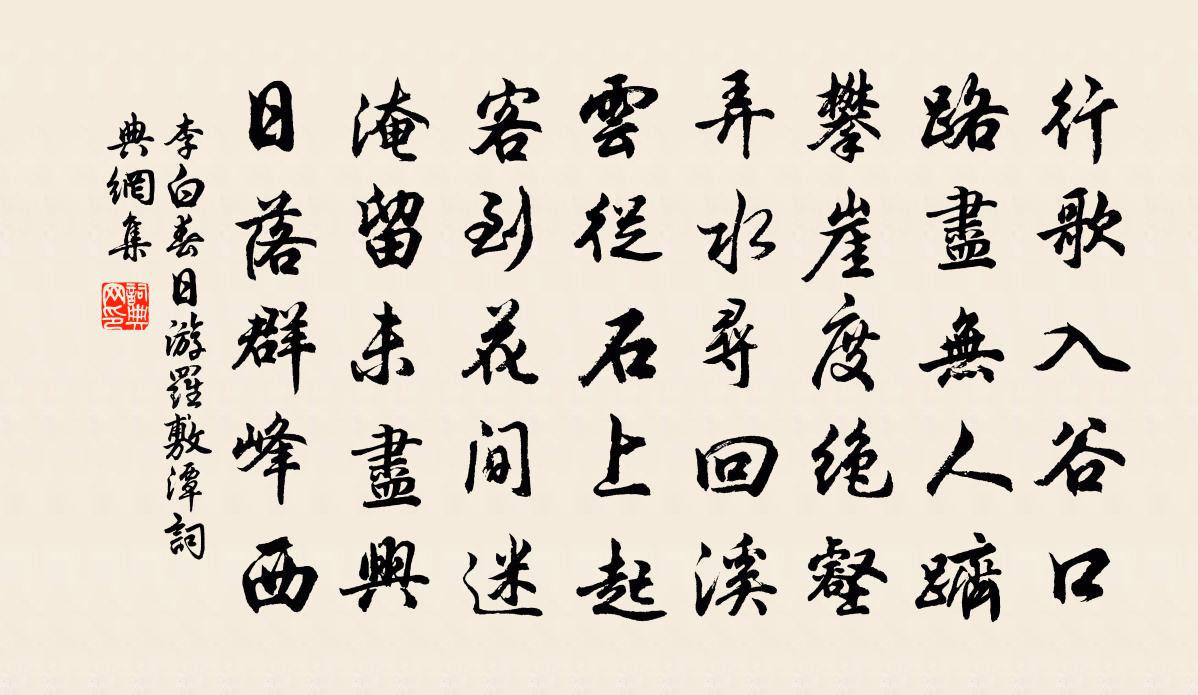 行歌入谷口
路盡無人躋
攀崖度絶壑
弄水尋回溪
雲從石上起
客到花間迷
淹留未盡興
日落群峰西
李白春日游羅敷潭詞
典網集
詞典
网印